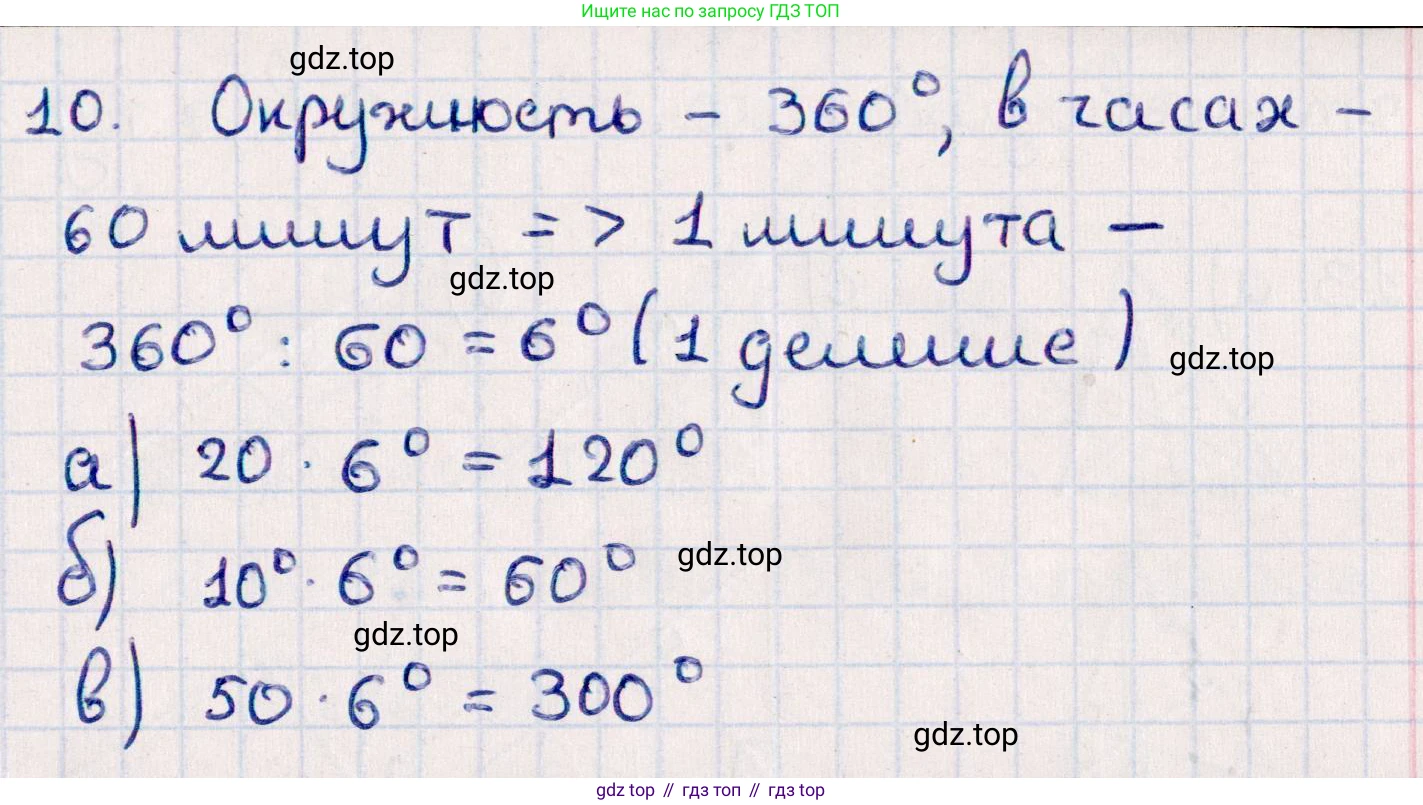 Ищите нас по запросу ГДЗ ТОП
gdz.top
10. Окружность - 360°, в часах -
60 минут => 1 минута -
gdz.top
360° : 60 = 6° (1 деление)
gdz.top
а) 20 · 6° = 120°
б) 10° · 6° = 60°
gdz.top
gdz.top
в) 50 · 6° = 300°
gdz.top
gdz top // гдз топ // гдз top